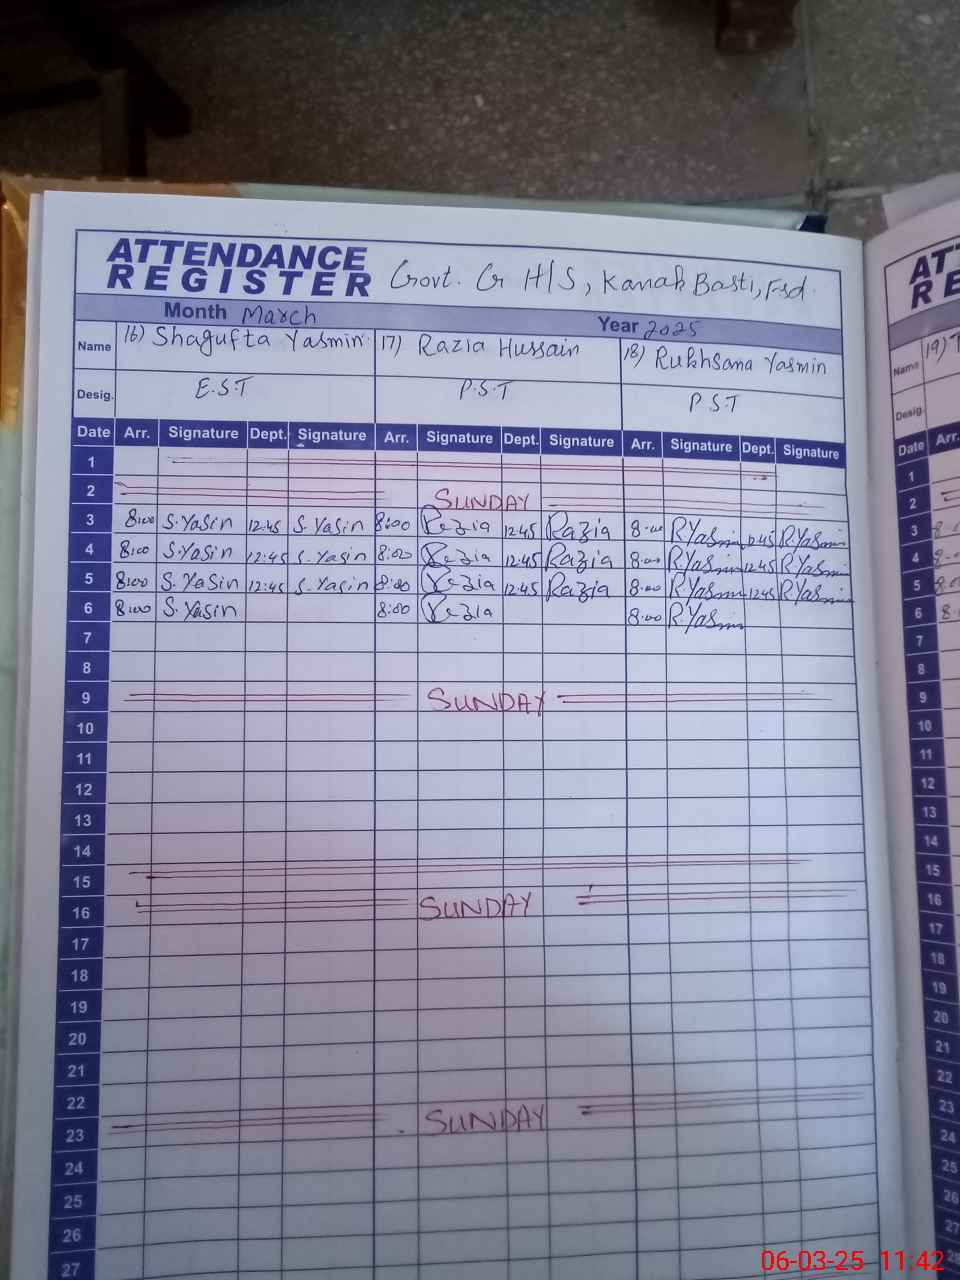 ATTENDANCE
REGISTER Govt. G H/S, Kanak Basti, Fsd.
Month March Year 2025
Name 16) Shagufta Yasmin 17) Razia Hussain 18) Rukhsana Yasmin
Desig. E.S.T P.S.T P.S.T
Date Arr. Signature Dept. Signature Arr. Signature Dept. Signature Arr. Signature Dept. Signature
1
2 SUNDAY
3 8:00 S.Yasin 12:45 S.Yasin 8:00 Razia 12:45 Razia 8:00 R.Yasmin 12:45 R.Yasmin
4 8:00 S.Yasin 12:45 S.Yasin 8:00 Razia 12:45 Razia 8:00 R.Yasmin 12:45 R.Yasmin
5 8:00 S.Yasin 12:45 S.Yasin 8:00 Razia 12:45 Razia 8:00 R.Yasmin 12:45 R.Yasmin
6 8:00 S.Yasin 8:00 Razia 8:00 R.Yasmin
7
8
9 SUNDAY
10
11
12
13
14
15
16 SUNDAY
17
18
19
20
21
22
23 SUNDAY
24
25
26
27
AT
RE
Name 19)
Desig.
Date Arr.
1
2
3
4
5
6
7
8
9
10
11
12
13
14
15
16
17
18
19
20
21
22
23
24
25
26
27
28
06-03-25 11:42